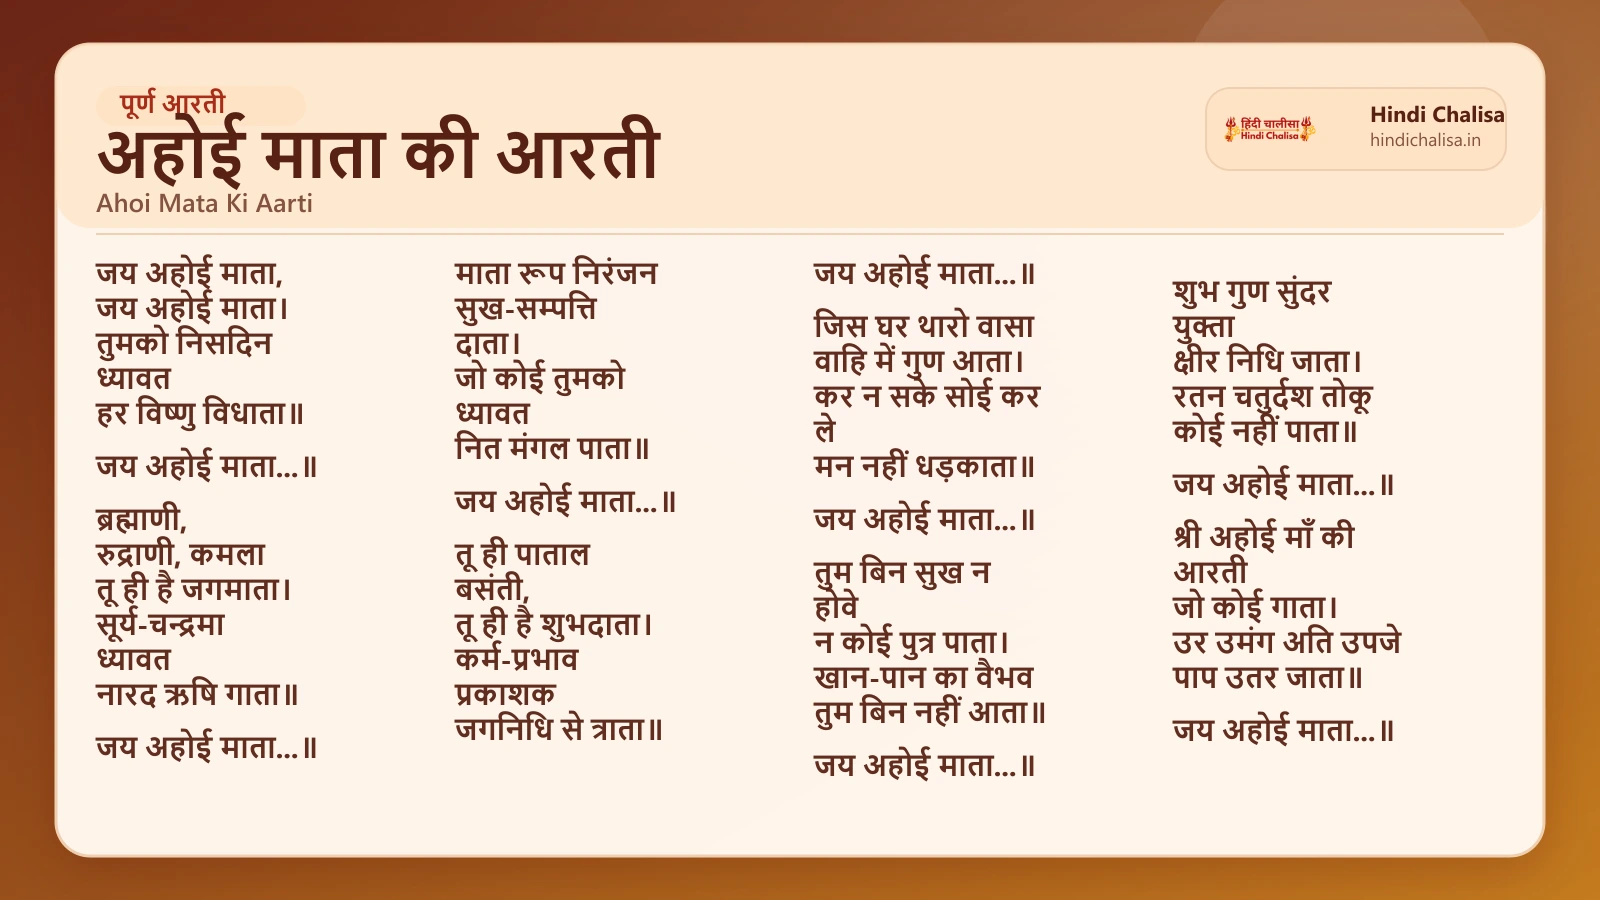 पूर्ण आरती
अहोई माता की आरती
Ahoi Mata Ki Aarti
हिंदी चालीसा
Hindi Chalisa
Hindi Chalisa
hindichalisa.in
जय अहोई माता,
जय अहोई माता।
तुमको निसदिन
ध्यावत
हर विष्णु विधाता॥
जय अहोई माता...॥
ब्रह्माणी,
रुद्राणी, कमला
तू ही है जगमाता।
सूर्य-चन्द्रमा
ध्यावत
नारद ऋषि गाता॥
जय अहोई माता...॥
माता रूप निरंजन
सुख-सम्पत्ति
दाता।
जो कोई तुमको
ध्यावत
नित मंगल पाता॥
जय अहोई माता...॥
तू ही पाताल
बसंती,
तू ही है शुभदाता।
कर्म-प्रभाव
प्रकाशक
जगनिधि से त्राता॥
जय अहोई माता...॥
जिस घर थारो वासा
वाहि में गुण आता।
कर न सके सोई कर
ले
मन नहीं धड़काता॥
जय अहोई माता...॥
तुम बिन सुख न
होवे
न कोई पुत्र पाता।
खान-पान का वैभव
तुम बिन नहीं आता॥
जय अहोई माता...॥
शुभ गुण सुंदर
युक्ता
क्षीर निधि जाता।
रतन चतुर्दश तोकू
कोई नहीं पाता॥
जय अहोई माता...॥
श्री अहोई माँ की
आरती
जो कोई गाता।
उर उमंग अति उपजे
पाप उतर जाता॥
जय अहोई माता...॥